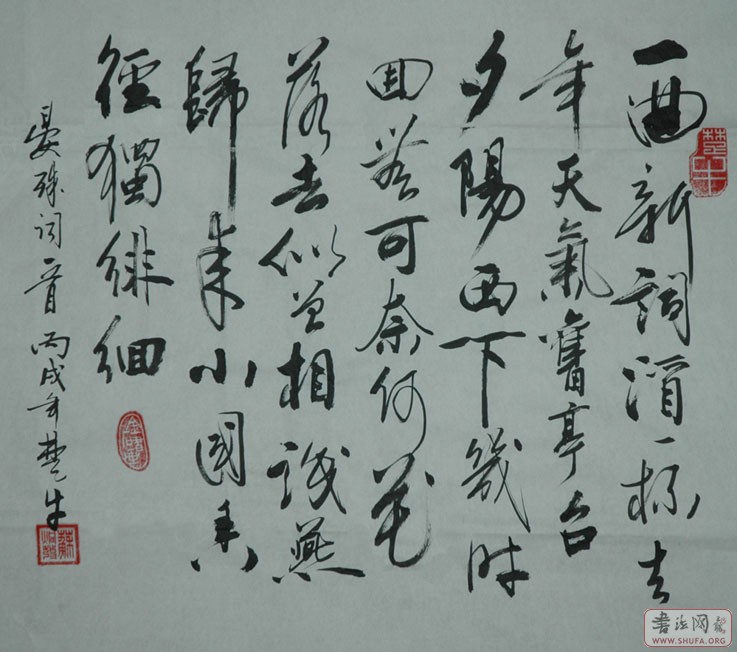 一曲新詞酒一杯去
年天氣舊亭台
夕陽西下幾時
回無可奈何花
落去似曾相識燕
歸来小園香
徑獨徘徊
晏殊词一首 丙戌年楚牛
楚牛
书法网
WWW.SHUFA.ORG